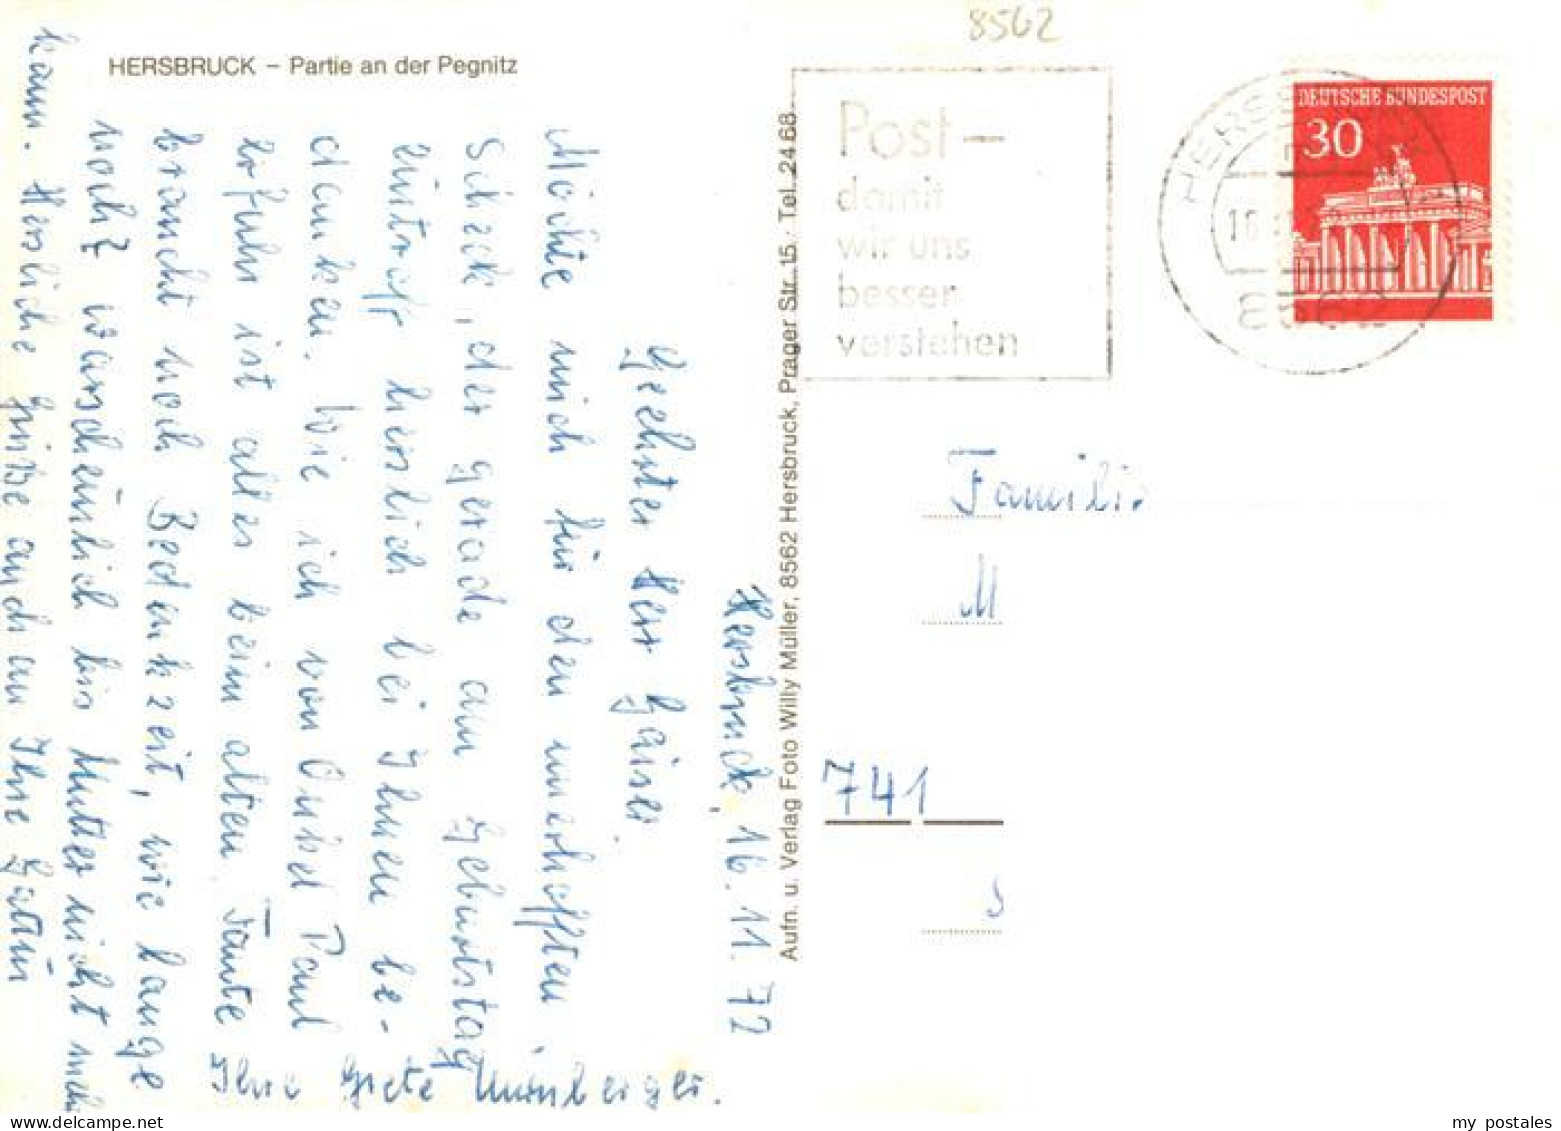 8562
HERSBRUCK – Partie an der Pegnitz
Hersbruck, 16.11.72
Geehrter Herr Gaiser.
Möchte mich für den unerhofften
Scheck, der gerade am Geburtstag
eintraff herslich bei Ihnen be-
danken. Wie ich von Onkel Paul
erfuhr ist alles beim alten. Tante
braucht noch Bedenkzeit, wie lange
noch? warscheinlich bis Mutter nicht mehr
kann. Hersliche Grüße auch an Ihre Gattin
Ihre Grete Nürnberger.
Aufn. u. Verlag Foto Willy Müller, 8562 Hersbruck, Prager Str. 15, Tel. 24 68
Post –
damit
wir uns
besser
verstehen
DEUTSCHE BUNDESPOST
30
HERSBRUCK
16.
8562
Familie
M
741
my postales